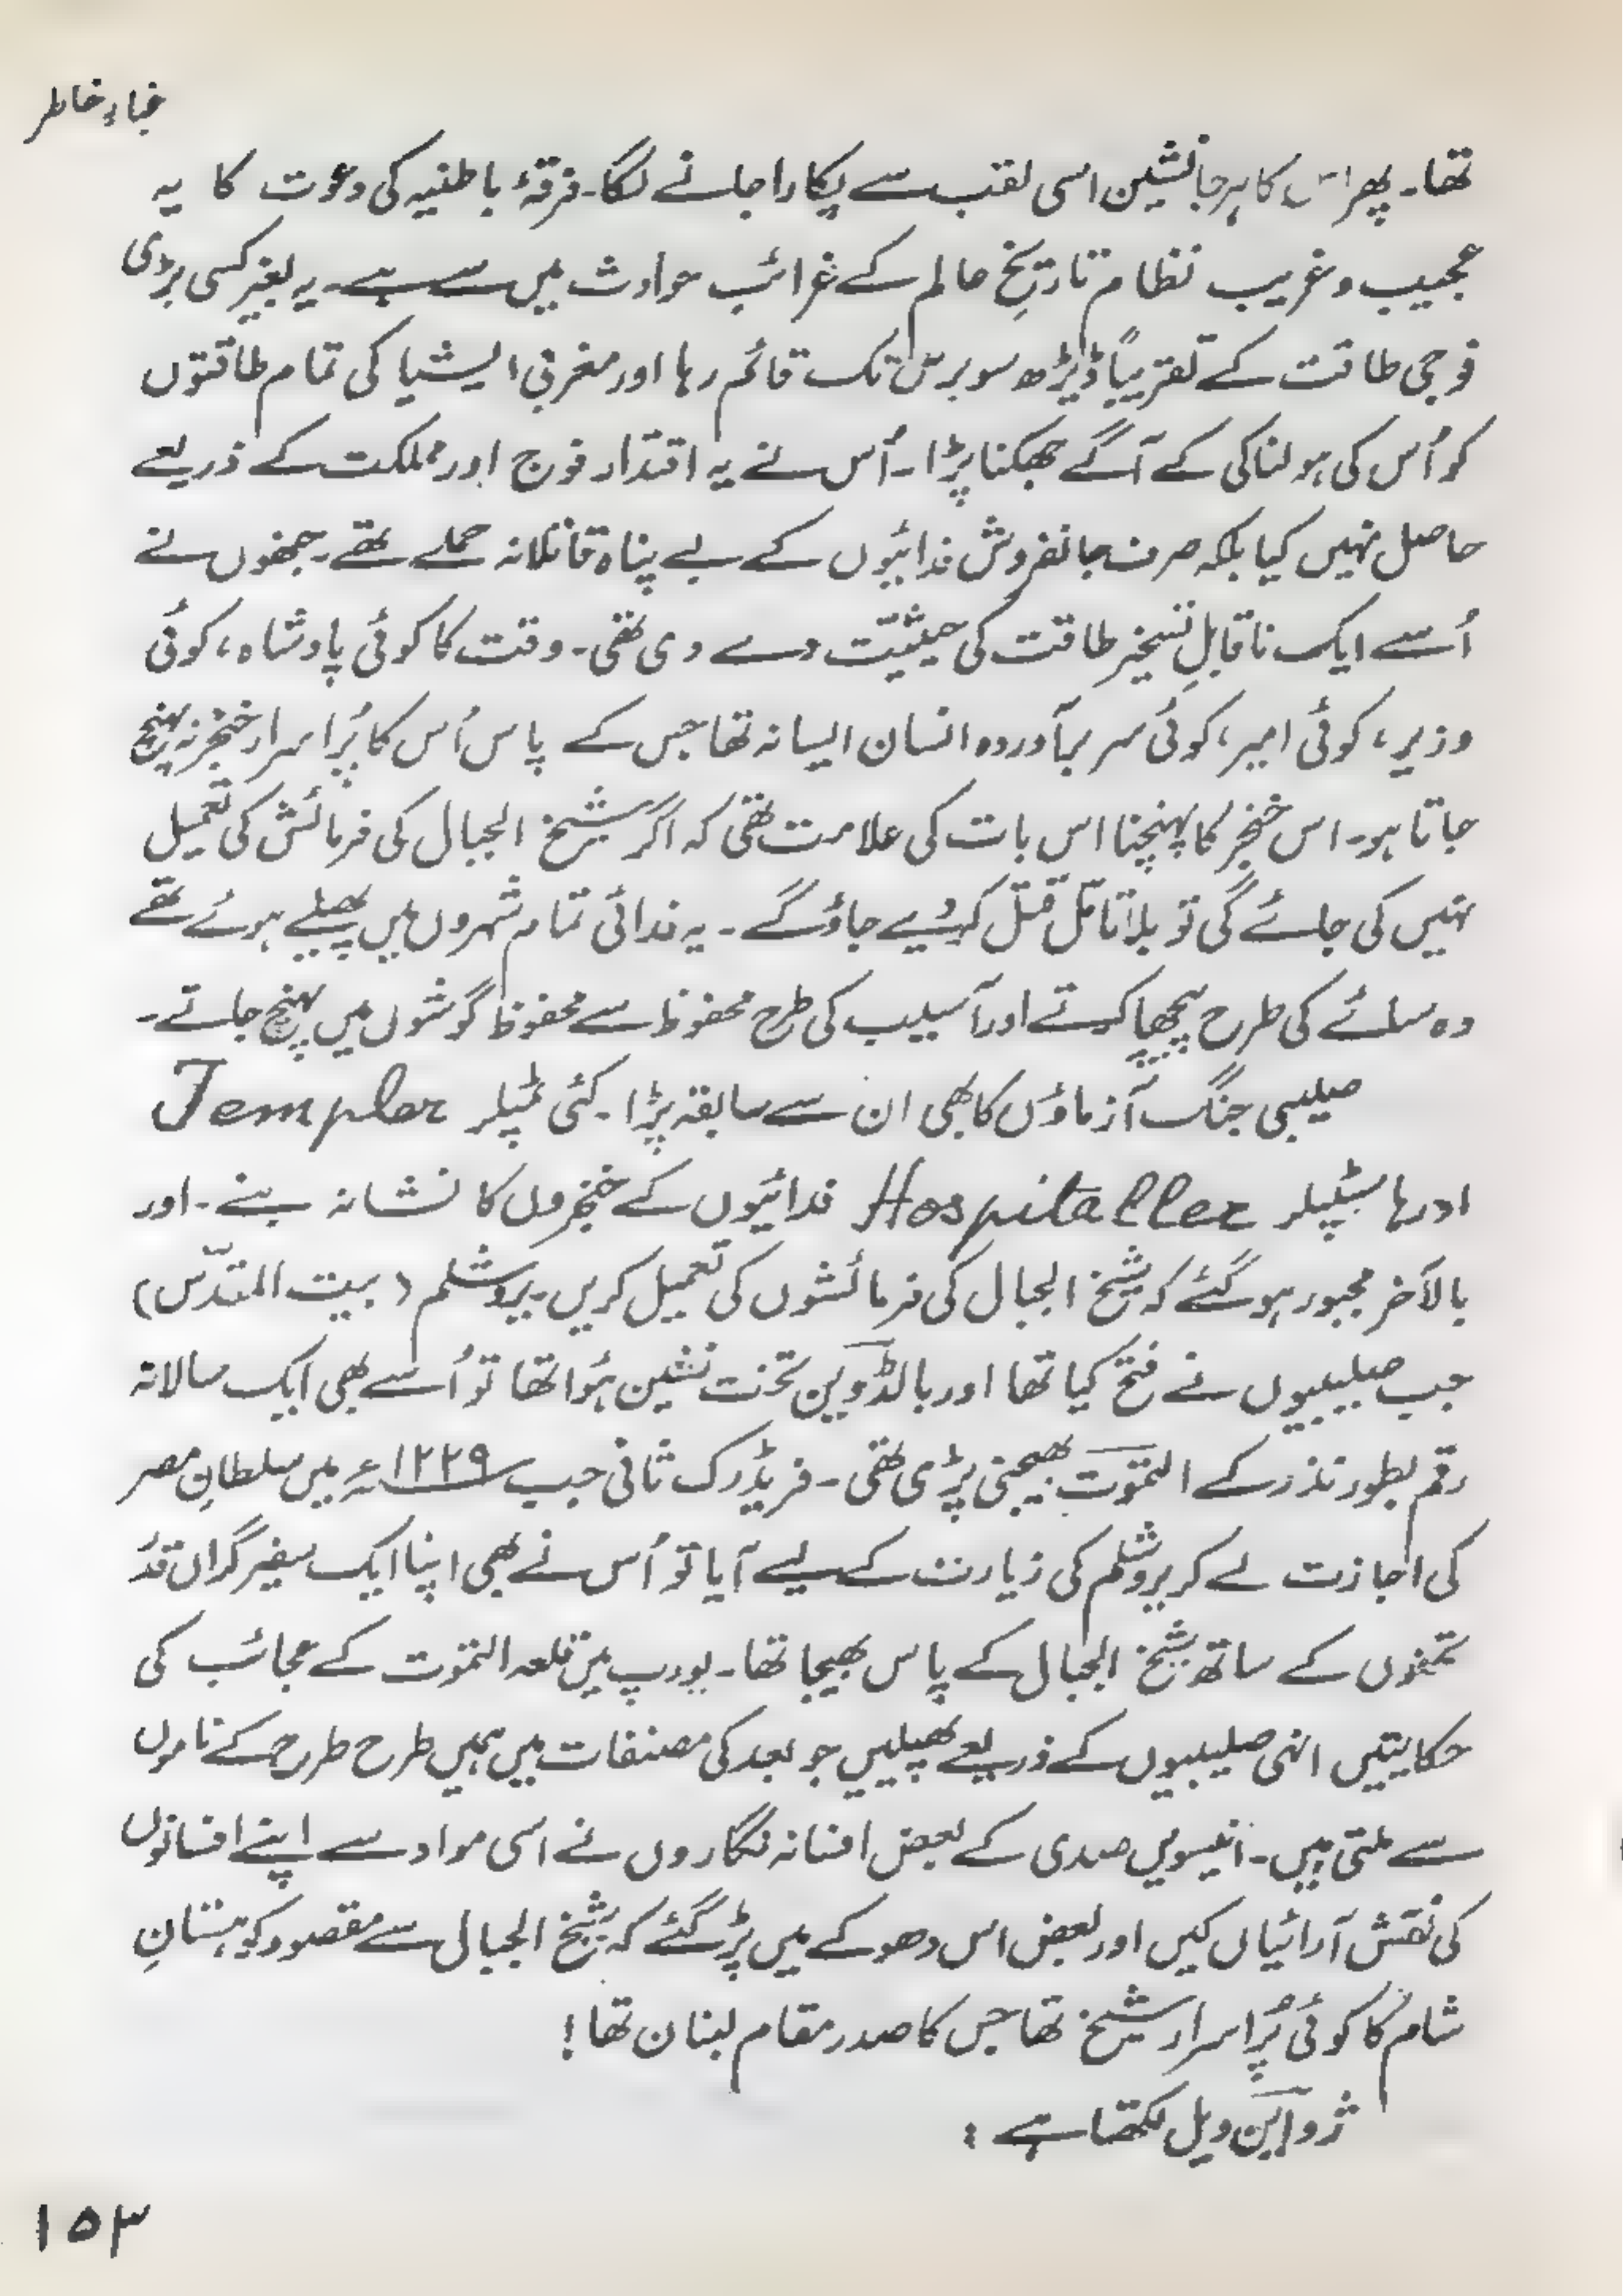 غبارِ خاطر
تھا۔ پھر اس کا ہر جانشین اسی لقب سے پکارا جانے لگا۔ فرقۂ باطنیہ کی دعوت کا یہ
عجیب و غریب نظام تاریخِ عالم کے غرائب حوادث میں سے ہے۔ یہ بغیر کسی بڑی
فوجی طاقت کے تقریباً ڈیڑھ سو برس تک قائم رہا اور مغربی ایشیا کی تمام طاقتوں
کو اُس کی ہولناکی کے آگے جھکنا پڑا۔ اُس نے یہ اقتدار فوج اور مملکت کے ذریعے
حاصل نہیں کیا بلکہ صرف جانفروش فدائیوں کے بے پناہ قاتلانہ حملے تھے۔ جنھوں نے
اُسے ایک ناقابلِ تسخیر طاقت کی حیثیّت دے دی تھی۔ وقت کا کوئی پادشاہ، کوئی
وزیر، کوئی امیر، کوئی سربرآوردہ انسان ایسا نہ تھا جس کے پاس اُس کا پُراسرار خنجر نہ پہنچ
جاتا ہو۔ اس خنجر کا پہنچنا اس بات کی علامت تھی کہ اگر شیخ الجبال کی فرمائش کی تعمیل
نہیں کی جائے گی تو بلا تامّل قتل کر دیے جاؤ گے۔ یہ فدائی تمام شہروں میں پھیلے ہوئے تھے
وہ سائے کی طرح پیچھا کرتے اور آسیب کی طرح محفوظ سے محفوظ گوشوں میں پہنچ جاتے۔
صلیبی جنگ آزماؤں کا بھی ان سے سابقہ پڑا۔ کئی ٹمپلر Templer
اور ہاسپٹیلر Hospitaller فدائیوں کے خنجروں کا نشانہ بنے۔ اور
بالآخر مجبور ہو گئے کہ شیخ الجبال کی فرمائشوں کی تعمیل کریں۔ یروشلم (بیت المقدّس)
جب صلیبیوں نے فتح کیا تھا اور بالڈوین تخت نشین ہُوا تھا تو اُسے بھی ایک سالانہ
رقم بطور نذر کے التموت بھیجنی پڑی تھی۔ فریڈرک ثانی جب ۱۲۲۹ء میں سلطانِ مصر
کی اجازت لے کر یروشلم کی زیارت کے لیے آیا تو اُس نے بھی اپنا ایک سفیر گراں قدر
تحفوں کے ساتھ شیخ الجبال کے پاس بھیجا تھا۔ یورپ میں قلعہ التموت کے عجائب کی
حکایتیں انہی صلیبیوں کے ذریعے پھیلیں جو بعد کی مصنفات میں ہمیں طرح طرح کے ناموں
سے ملتی ہیں۔ انیسویں صدی کے بعض افسانہ نگاروں نے اسی مواد سے اپنے افسانوں
کی نقش آرائیاں کیں اور بعض اس دھوکے میں پڑ گئے کہ شیخ الجبال سے مقصود کوہستانِ
شام کا کوئی پُراسرار شیخ تھا جس کا صدر مقام لبنان تھا!
ژواین ویل لکھتا ہے:
۱۵۳